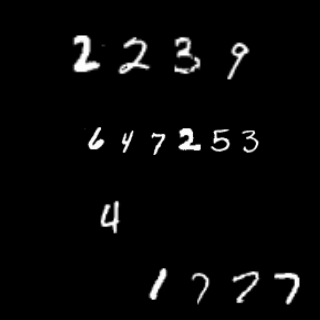 2 2 3 9
6 4 7 2 5 3
4
1 7 7 7